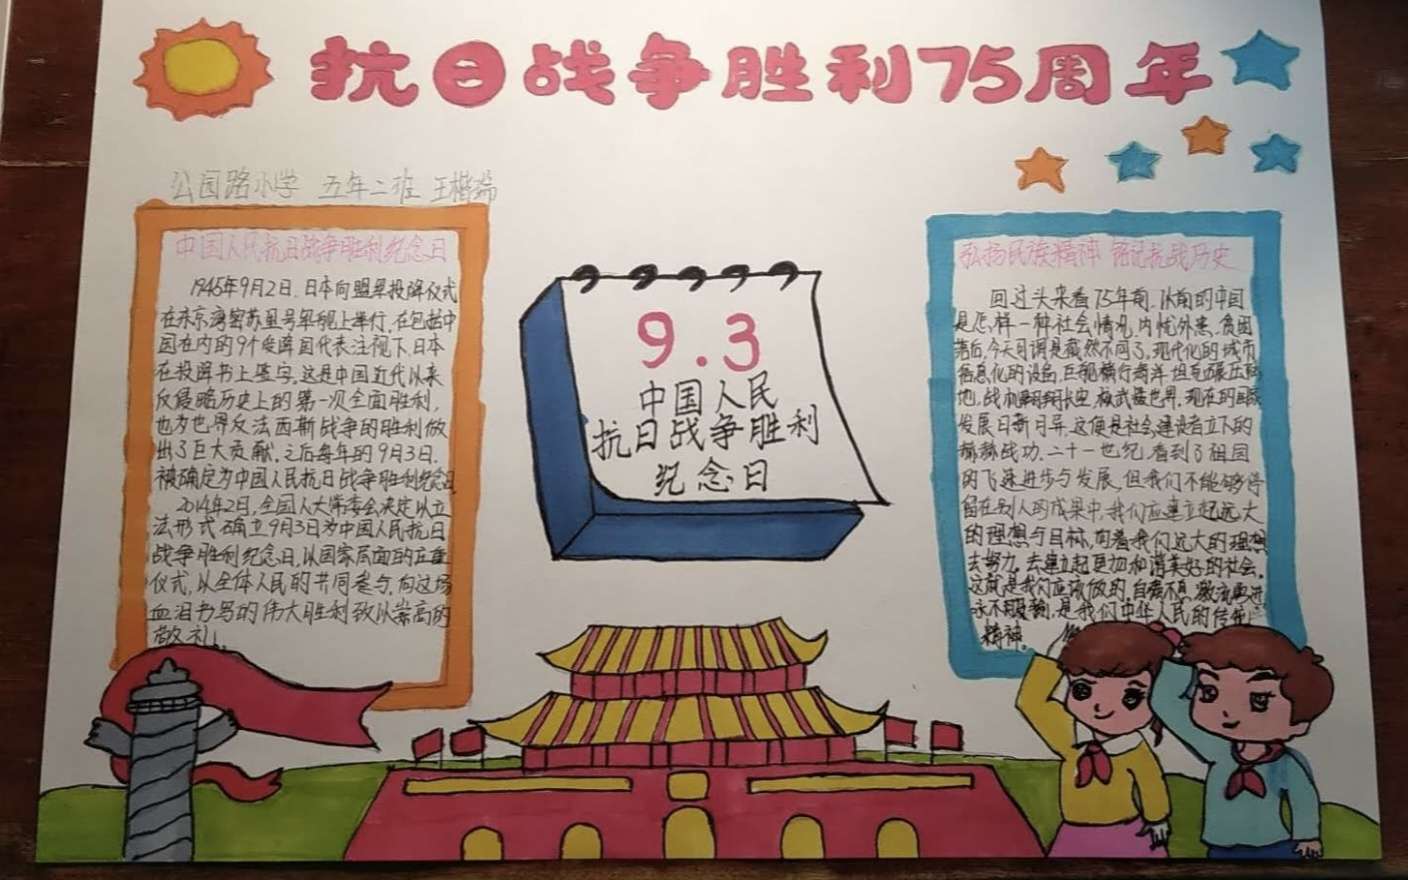 抗日战争胜利75周年
公园路小学 五年二班 王楷瑞
中国人民抗日战争胜利纪念日
1945年9月2日，日本向盟军投降仪式
在东京湾密苏里号军舰上举行，在包括中
国在内的9个受降国代表注视下，日本
在投降书上签字。这是中国近代以来
反侵略历史上的第一次全面胜利，
也为世界反法西斯战争的胜利做
出了巨大贡献。之后每年的9月3日，
被确定为中国人民抗日战争胜利纪念日
2014年2日，全国人大常委会决定以立
法形式确立9月3日为中国人民抗日
战争胜利纪念日，以国家局面的正重
仪式，以全体人民的共同参与，向这场
血泪书写的伟大胜利致以崇高的
敬礼！
9.3
中国人民
抗日战争胜利
纪念日
弘扬民族精神 铭记抗战历史
回过头来看75年前，以前的中国
是怎样一种社会情况，内忧外患，贫困
落后，今天可谓是截然不同了，现代化的城市
信息化的设备，巨舰横行海洋，坦克碾压陆
地，战机翱翔长空，核武震世界，现在的国家
发展日新月异，这便是社会建设者立下的
赫赫战功，二十一世纪，看到了祖国
的飞速进步与发展，但我们不能够停
留在别人的成果中，我们应建立起远大
的理想与目标，向着我们远大的理想
去努力，去建立起更加和谐美好的社会。
这就是我们应该做的，自强不息，激流勇进，
永不服输，是我们中华人民的传统
精神。